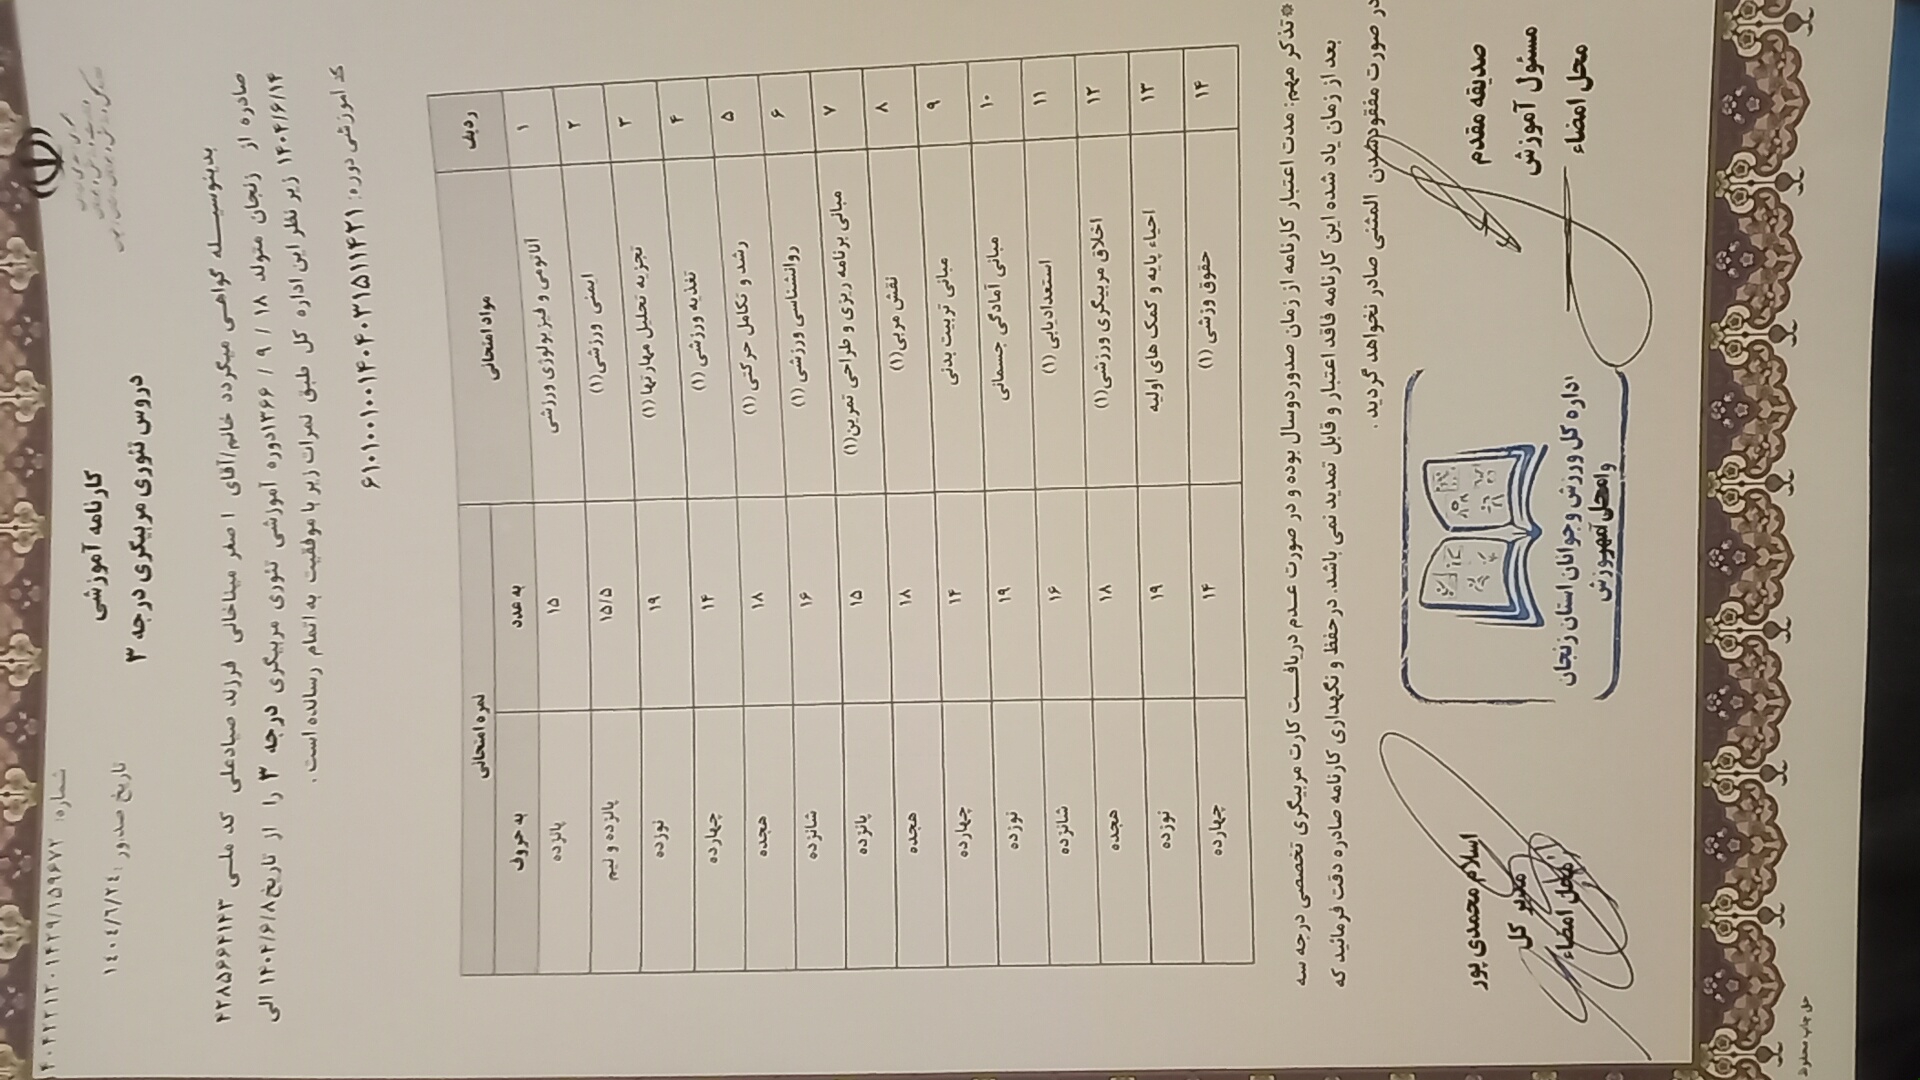 شماره: ۱۴۲۹/۱۵۹۶۷۲
تاریخ صدور: ۱۴۰۴/۶/۲۴
کارنامه آموزشی
دروس تئوری مربیگری درجه ۳
بدینوسیله گواهی میگردد خانم/آقای اصغر میناخانی فرزند صیادعلی کد ملی ۴۲۸۵۶۶۴۱۴۳
صادره از زنجان متولد ۱۸ / ۹ / ۱۳۶۶ دوره آموزشی تئوری مربیگری درجه ۳ را از تاریخ ۱۴۰۴/۶/۸ الی
۱۴۰۴/۶/۱۴ زیر نظر این اداره کل طبق نمرات زیر با موفقیت به اتمام رسانده است.
کد آموزشی دوره: ۶۱۰۱۰۰۱۰۰۱۴۰۴۰۳۱۵۱۱۴۲۱
ردیف مواد امتحانی نمره امتحانی
به عدد به حروف
۱ آناتومی و فیزیولوژی ورزشی ۱۵ پانزده
۲ ایمنی ورزشی (۱) ۱۵/۵ پانزده و نیم
۳ تجزیه تحلیل مهارتها (۱) ۱۹ نوزده
۴ تغذیه ورزشی (۱) ۱۴ چهارده
۵ رشد و تکامل حرکتی (۱) ۱۸ هجده
۶ روانشناسی ورزشی (۱) ۱۶ شانزده
۷ مبانی برنامه ریزی و طراحی تمرین(۱) ۱۵ پانزده
۸ نقش مربی(۱) ۱۸ هجده
۹ مبانی تربیت بدنی ۱۴ چهارده
۱۰ مبانی آمادگی جسمانی ۱۹ نوزده
۱۱ استعدادیابی (۱) ۱۶ شانزده
۱۲ اخلاق مربیگری ورزشی(۱) ۱۸ هجده
۱۳ احیاء پایه و کمک های اولیه ۱۹ نوزده
۱۴ حقوق ورزشی (۱) ۱۴ چهارده
*تذکر مهم: مدت اعتبار کارنامه از زمان صدور دوسال بوده و در صورت عدم دریافت کارت مربیگری تخصصی درجه سه
بعد از زمان یاد شده این کارنامه فاقد اعتبار و قابل تمدید نمی باشد. در حفظ و نگهداری کارنامه صادره دقت فرمائید که
در صورت مفقودشدن المثنی صادر نخواهد گردید.
صدیقه مقدم
مسئول آموزش
محل امضاء
اداره کل ورزش و جوانان استان زنجان
اسلام محمدی پور
مدیر کل
محل امضاء